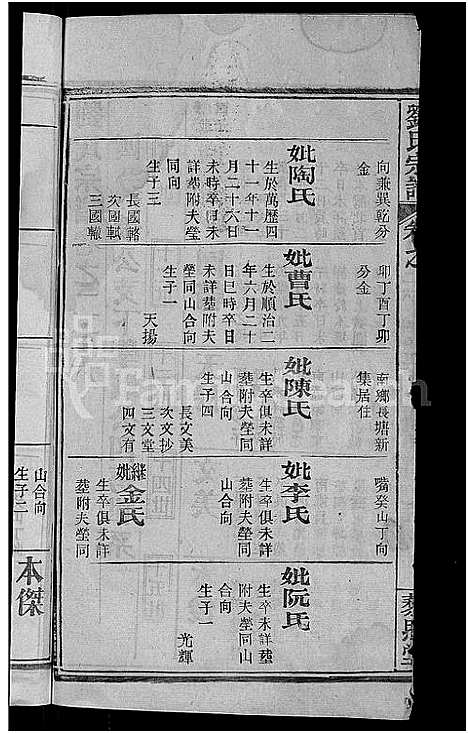 劉氏宗譜
向兼巽乾分
金
妣陶氏
生於萬歷四
十一年十一
月二十六日
未時卒日未
詳塟附夫塋
同向
生子三
長國輅
次國軾
三國轍
卯丁酉丁卯
分金
妣曹氏
生於順治二
年六月二十
日巳時卒日
未詳塟附夫
塋同山合向
生子一
天揚
南鄉長塘新
集居住
妣陳氏
生卒俱未詳
塟附夫塋同
山合向
生子四
長文美
次文抄
三文堂
四文有
嘴癸山丁向
妣李氏
生卒俱未詳
塟附夫塋同
山合向
繼妣金氏
生卒俱未詳
塟附夫塋同
妣阮氏
生卒未詳塟
附夫塋同山
合向
生子一
光輝
山合向
生子二
本傑